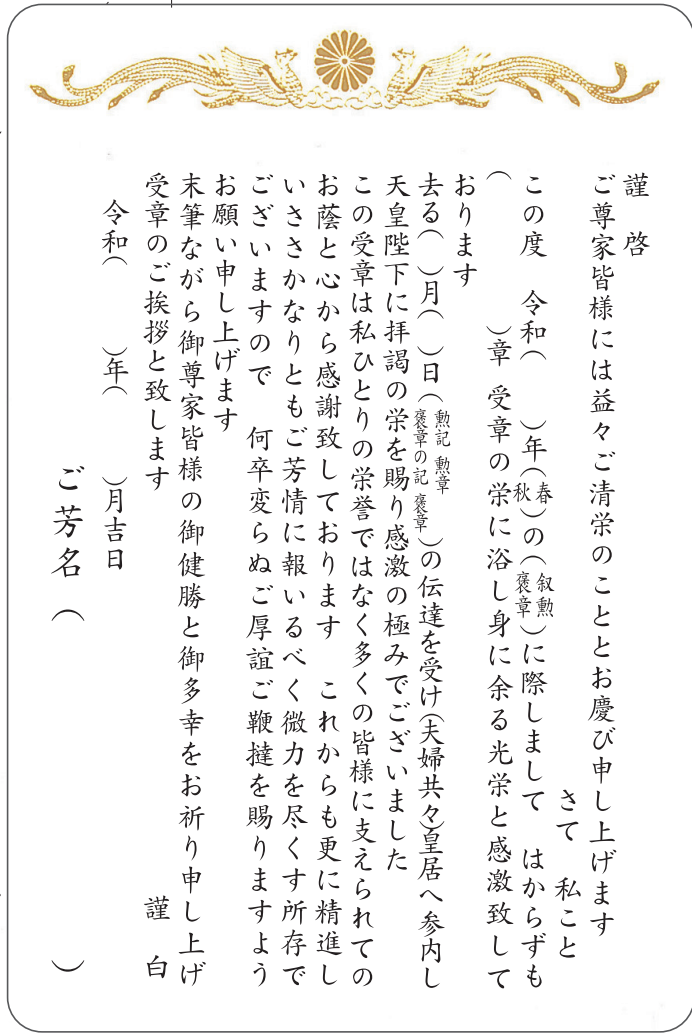 謹 啓
ご尊家皆様には益々ご清栄のこととお慶び申し上げます
さて 私こと
この度 令和( )年(春 秋)の(叙勲 褒章)に際しまして はからずも
( )章 受章の栄に浴し身に余る光栄と感激致して
おります
去る( )月( )日(勲記 勲章 褒章の記 褒章)の伝達を受け(夫婦共々)皇居へ参内し
天皇陛下に拝謁の栄を賜り感激の極みでございました
この受章は私ひとりの栄誉ではなく多くの皆様に支えられての
お蔭と心から感謝致しております これからも更に精進し
いささかなりともご芳情に報いるべく微力を尽くす所存で
ございますので 何卒変らぬご厚誼ご鞭撻を賜りますよう
お願い申し上げます
末筆ながら御尊家皆様の御健勝と御多幸をお祈り申し上げ
受章のご挨拶と致します
謹 白
令和( )年( )月吉日
ご芳名( )